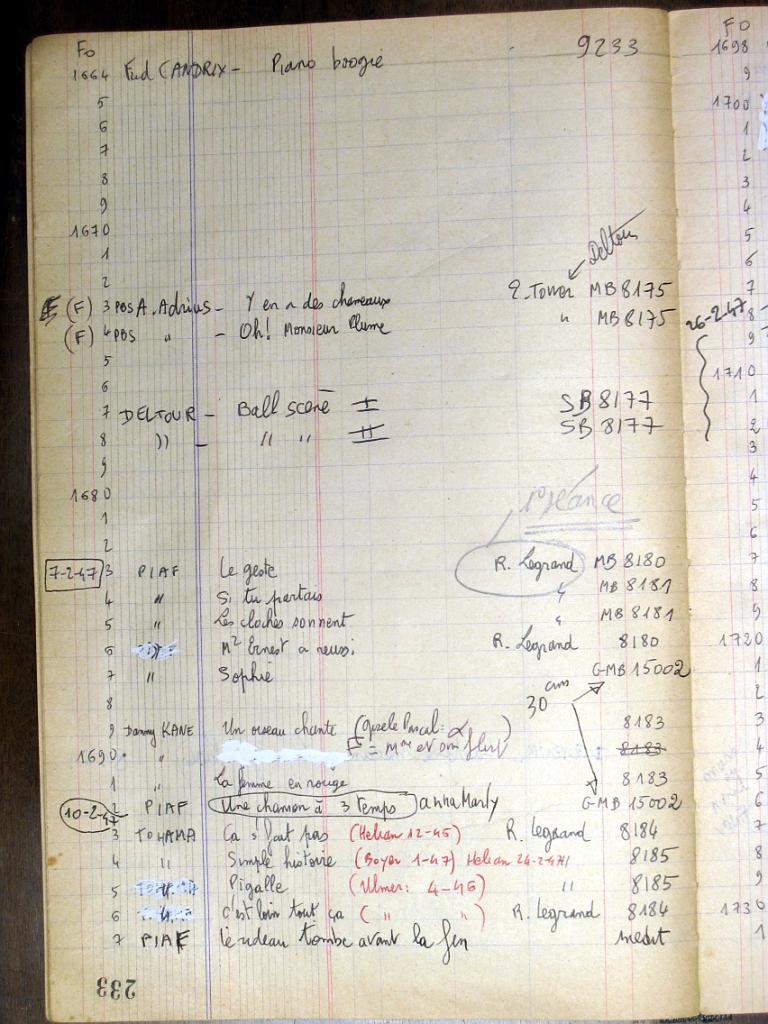 Fo
1664 Fud CANDRIX - Piano boogie 9233
5
6
7
8
9
1670
1
2
Deltour
(F) 3 PBS A. Adrius - Y en a des chameaux E. Tower MB 8175
(F) 4 PBS " - Oh! Monsieur Plume " MB 8175
5
6
7 DELTOUR - Ball scène I SB 8177
8 )) - " " II SB 8177
9
1680
1
1° séance
2
7-2-47 3 PIAF Le geste R. Legrand MB 8180
4 " Si tu partais " MB 8181
5 " Les cloches sonnent " MB 8181
6 Mr Ernest a reussi R. Legrand 8180
7 " Sophie GMB 15002
8 30 cms
9 Danny KANE Un oiseau chante 8183
1690 " F = 8183
1 " La femme en rouge 8183
10-2-47 2 PIAF Une chanson à 3 temps anna Marly GMB 15002
3 TOHAMA Ca s'fait pas (Helian 12-45) R. Legrand 8184
4 " Simple histoire (Boyer 1-47) Helian 24-2-47 8185
5 " Pigalle (Ulmer: 4-46) " 8185
6 " c'est loin tout ça ( " " ) R. Legrand 8184
7 PIAF le rideau tombe avant la fin inedit
233
FO
1698
9
1700
1
2
3
4
5
6
7
26-2-47 8
9
1710
1
2
3
4
5
6
7
8
9
1720
1
2
3
4
5
6
7
8
9
1730
1